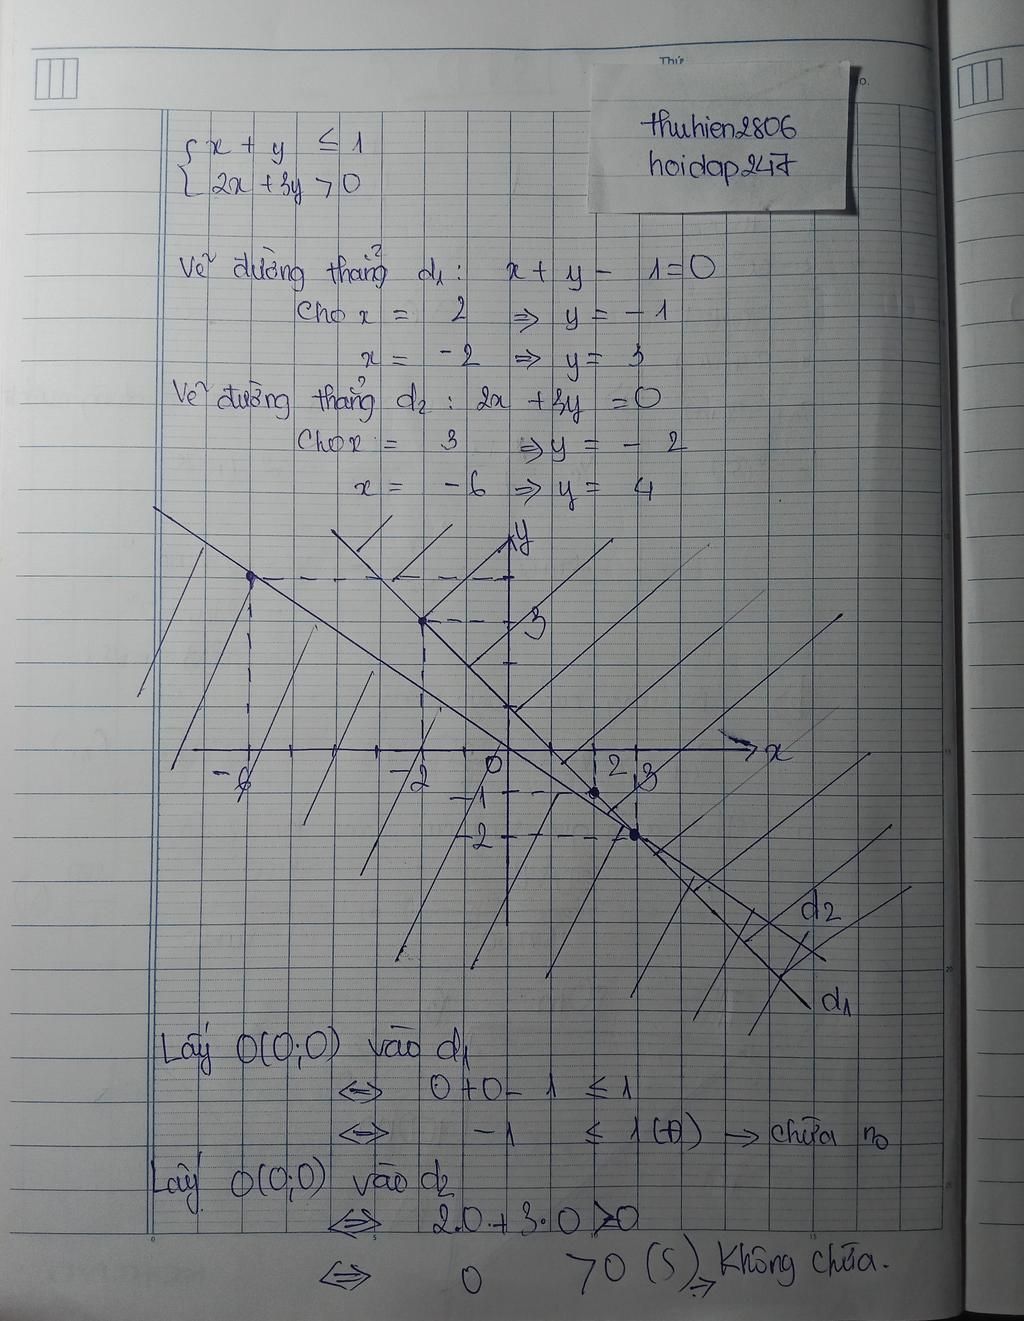 Thứ
thuhien2806
hoidap247
{ x + y ≤ 1
2x + 3y > 0
Vẽ đường thẳng d1: x + y - 1 = 0
Cho x = 2 => y = -1
x = -2 => y = 3
Vẽ đường thẳng d2: 2x + 3y = 0
Cho x = 3 => y = -2
x = -6 => y = 4
y
3
x
-6 -2 0 2 3
-1
-2
d2
d1
Lấy O(0;0) vào d1
<=> 0+0-1 ≤ 1
<=> -1 ≤ 1 (Đ) → chứa no
Lấy O(0;0) vào d2
<=> 2.0 + 3.0 >0
<=> 0 >0 (S) => Không chứa.